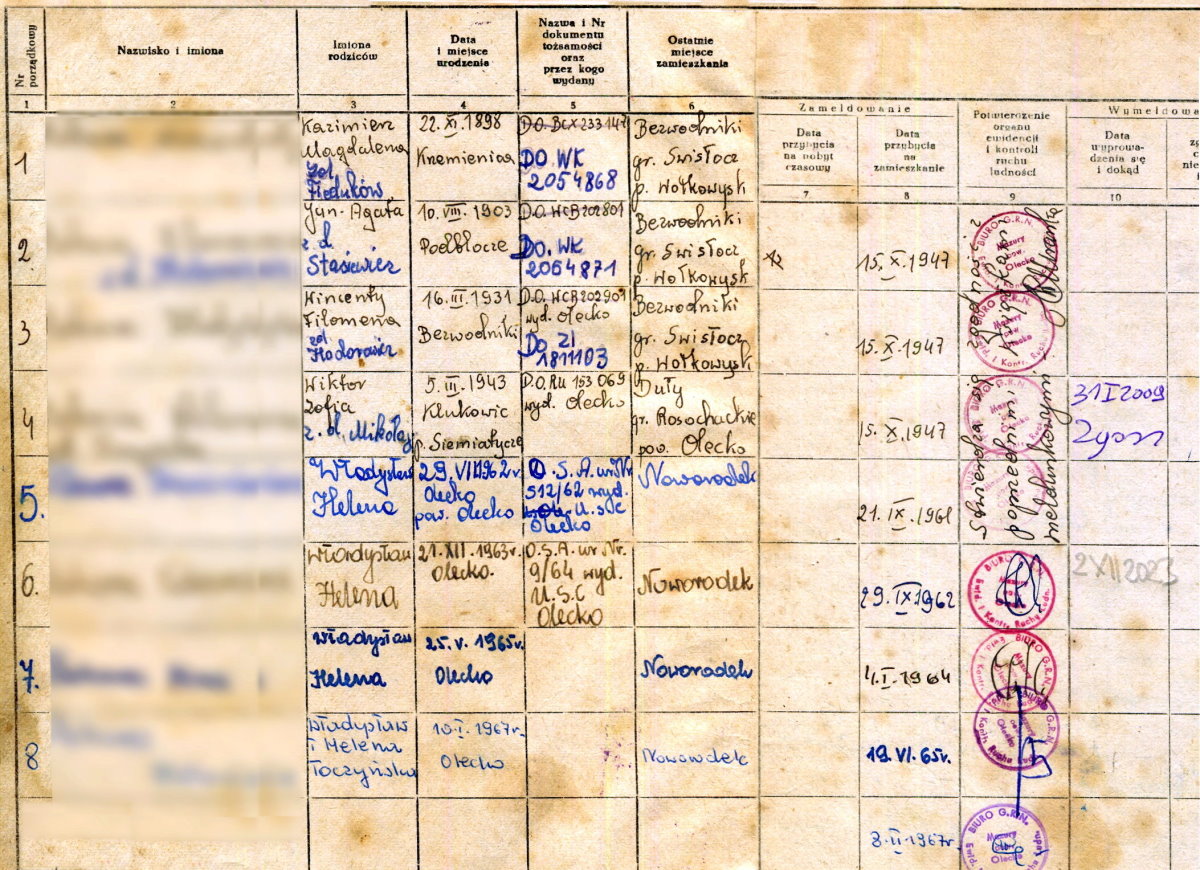 Nr porządkowy
Nazwisko i imiona
Imiona
rodziców
Data
i miejsce
urodzenia
Nazwa i Nr
dokumentu
tożsamości
oraz
przez kogo
wydany
Ostatnie
miejsce
zamieszkania
1 2 3 4 5 6
Zameldowanie
Data
przybycia
na pobyt
czasowy
Data
przybycia
na
zamieszkanie
Potwierdzenie
organu
ewidencji
i kontroli
ruchu
ludności
Wymeldowa
Data
wyprowa-
dzenia się
i dokąd
7 8 9 10
1
Kazimierz
Magdalena
Fieduków
22. XI. 1898
Kniemienica
D.O. BCX 233147
DO. WK
2054868
Bezwodniki
gr. Swisłocz
p. Wołkowysk
2.
Jyn-Agata
z d.
Stasiewicz
10. VIII. 1903
Podbłocze
D.O. WCB 202801
DO. WK
2054871
Bezwodniki
gr. Swisłocz
p. Wołkowysk
15. X. 1947
3
Wincenty
Filomena
Hodorowicz
16. III. 1931
Bezwodniki
D.O. WCB 202901
wyd. Olecko
Do ZI
1811103
Bezwodniki
gr. Swisłocz
p. Wołkowysk
15. X. 1947
4
Wiktor
Zofia
z. d. Mikołaj
5. III. 1943
Klukowic
p. Siemiatycze
D.O. RU 153 069
wyd. Olecko
Duły
gr. Rosochackie
pow. Olecko
15. X. 1947
31 I 2009
Zgon
5.
Władysław
Helena
29. VII 1962 r.
Olecko
pow. Olecko
O. S. A. ur. Nr
512/62 wyd.
U.S.C
Olecko
Noworadek
21. IX. 1961
6.
Władysław
Helena
21. XII. 1963 r.
Olecko.
O.S.A. ur. Nr.
9/64 wyd.
U.S.C
Olecko
Noworadek
29. IX 1962
2 XII 2023
7.
Władysław
Helena
25. V. 1965 r.
Olecko
Noworadek
4. I. 1964
8
Władysław
i Helena
Toczyńska
10. I. 1967 r.
Olecko
Noworadek
19. VI. 65 r.
8. II. 1967 r.
BIURO G.R.N.
Mazury
pow.
Olecko